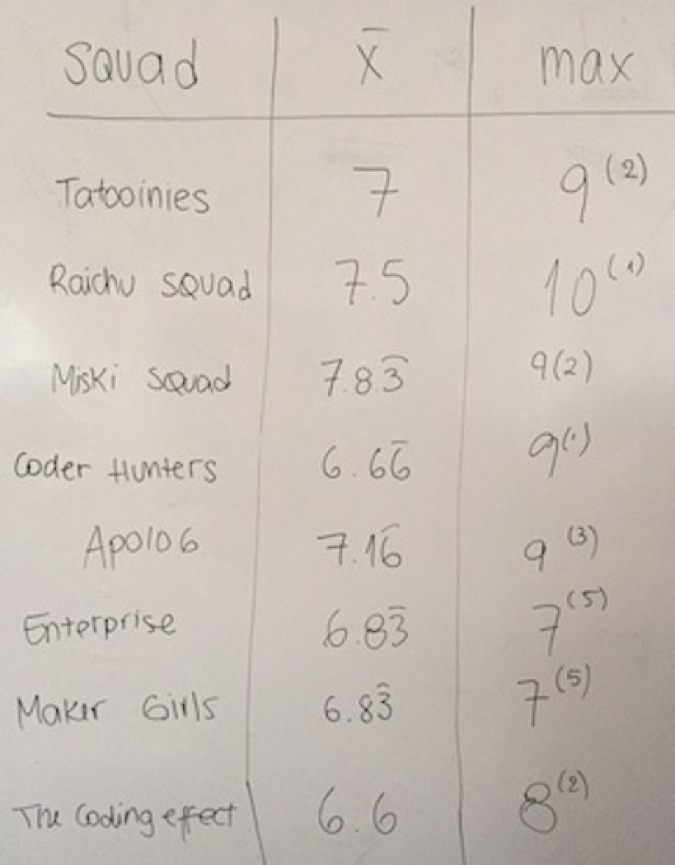 Squad x̄ max
Tatooinies 7 9(2)
Raichu squad 7.5 10(1)
Miski squad 7.83̄ 9(2)
Coder Hunters 6.66̄ 9(1)
Apolo 6 7.16̄ 9(3)
Enterprise 6.83̄ 7(5)
Maker Girls 6.83̄ 7(5)
The Coding effect 6.6 8(2)